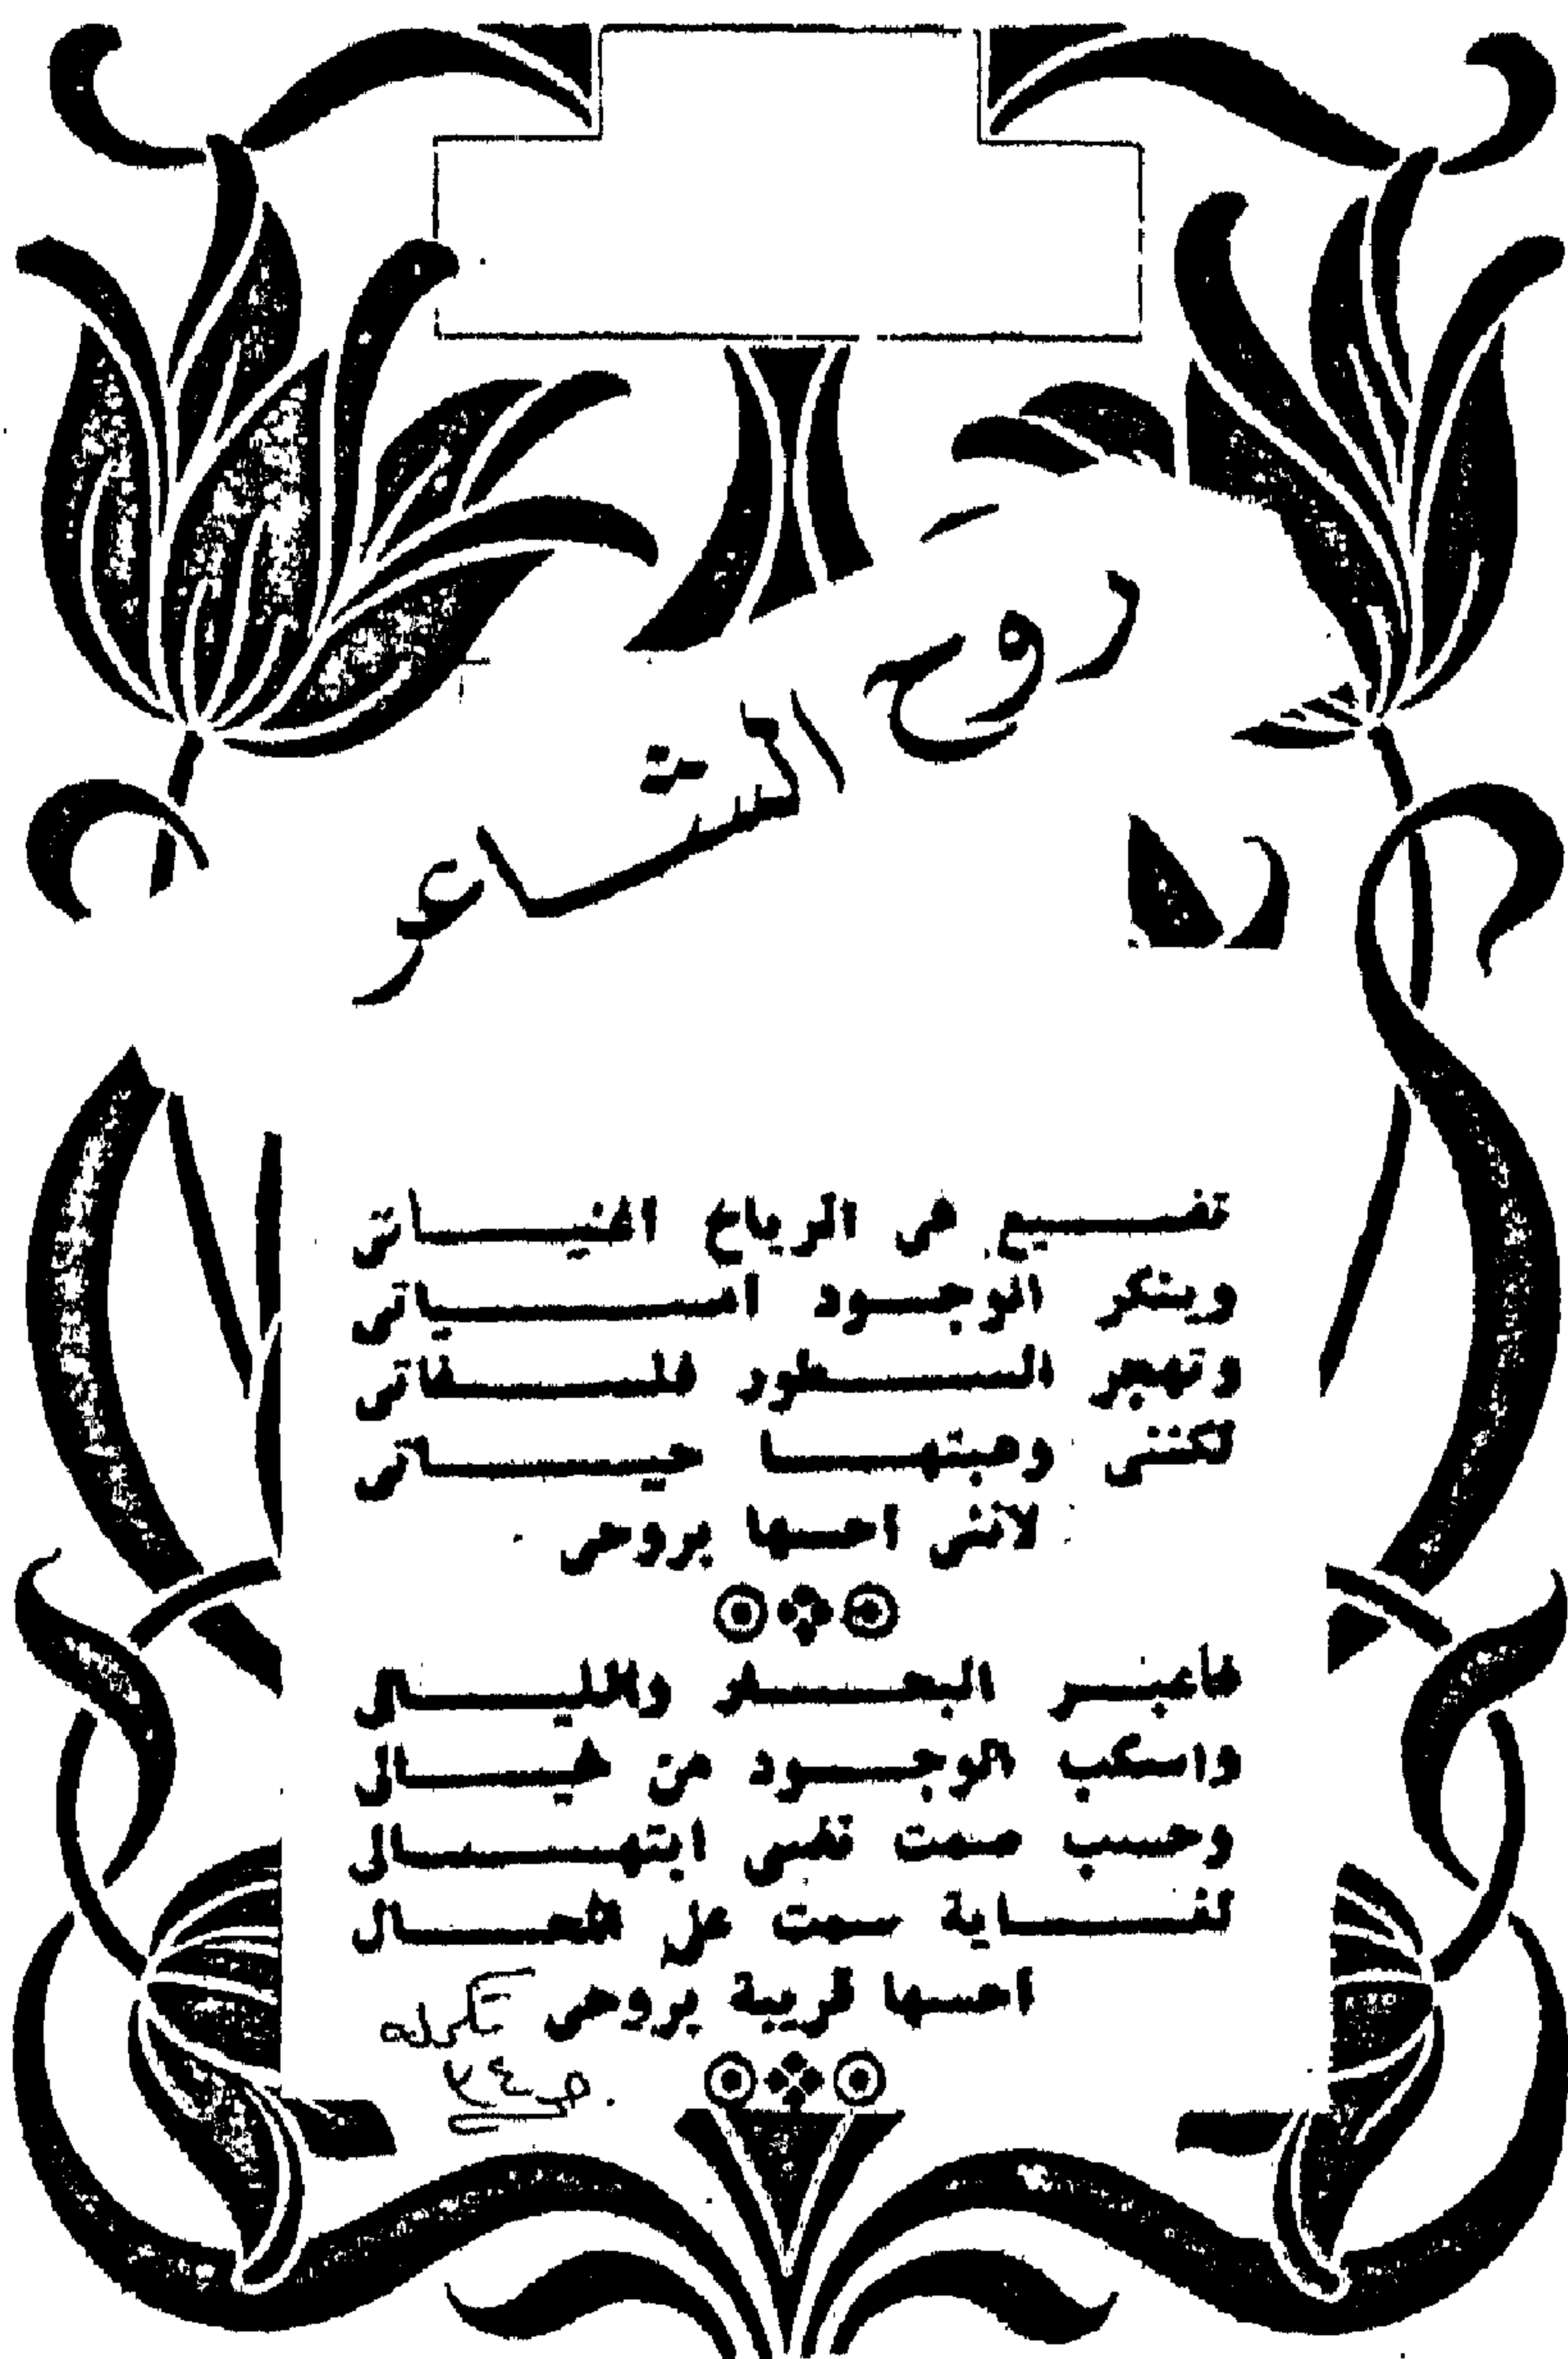 روح الشاعر
تضيع في الرياح اغنياتي
وينكر الوجود امسياتي
وتهجر السطور فلسفاتي
لكنني وهبتها حياتي
لأنني احسها بروحي
فأعبر البحار والليالي
واسكب الوجود من خيالي
وحسب صمت نفسي ابتهالي
لغاية سمت على المحال
احسها قريبة بروحي